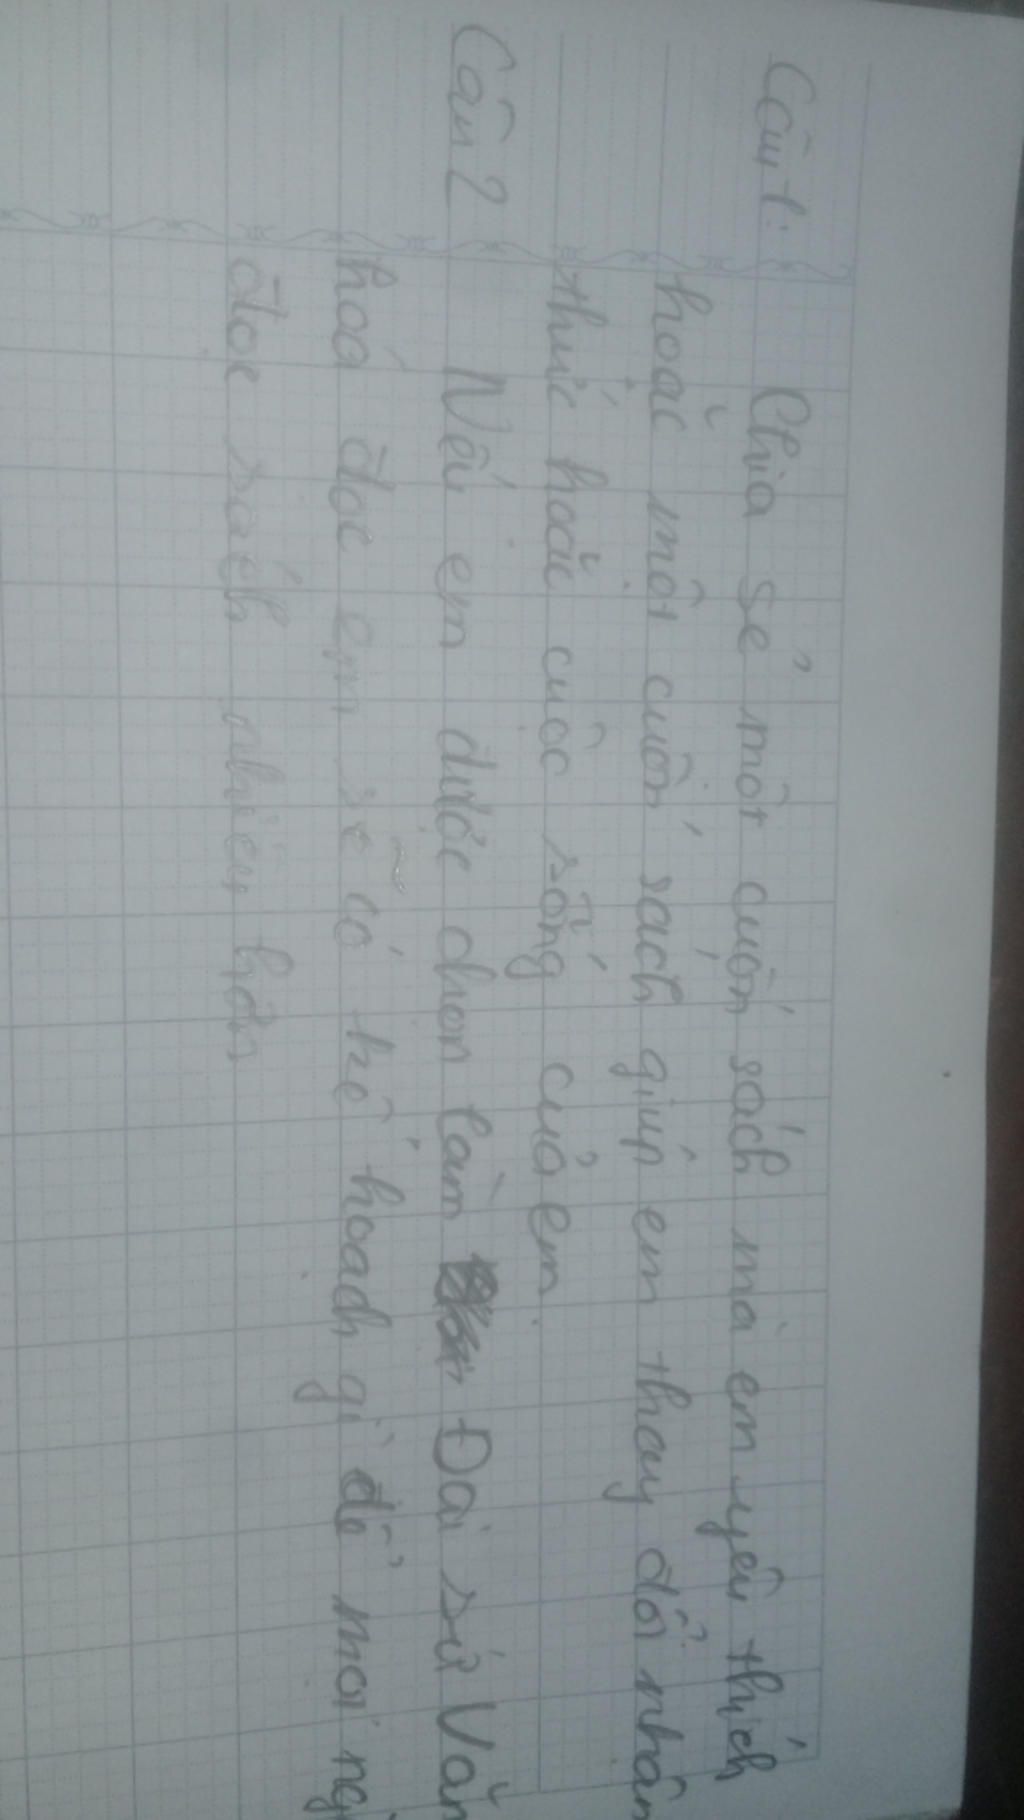 Câu 1: Chia sẻ một cuốn sách mà em yêu thích
hoặc một cuốn sách giúp em thay đổi nhận
thức hoặc cuộc sống của em.
Câu 2 Nếu em được chọn làm Đại sứ Văn
hoá đọc em sẽ có kế hoạch gì để mọi
đọc sách nhiều hơn